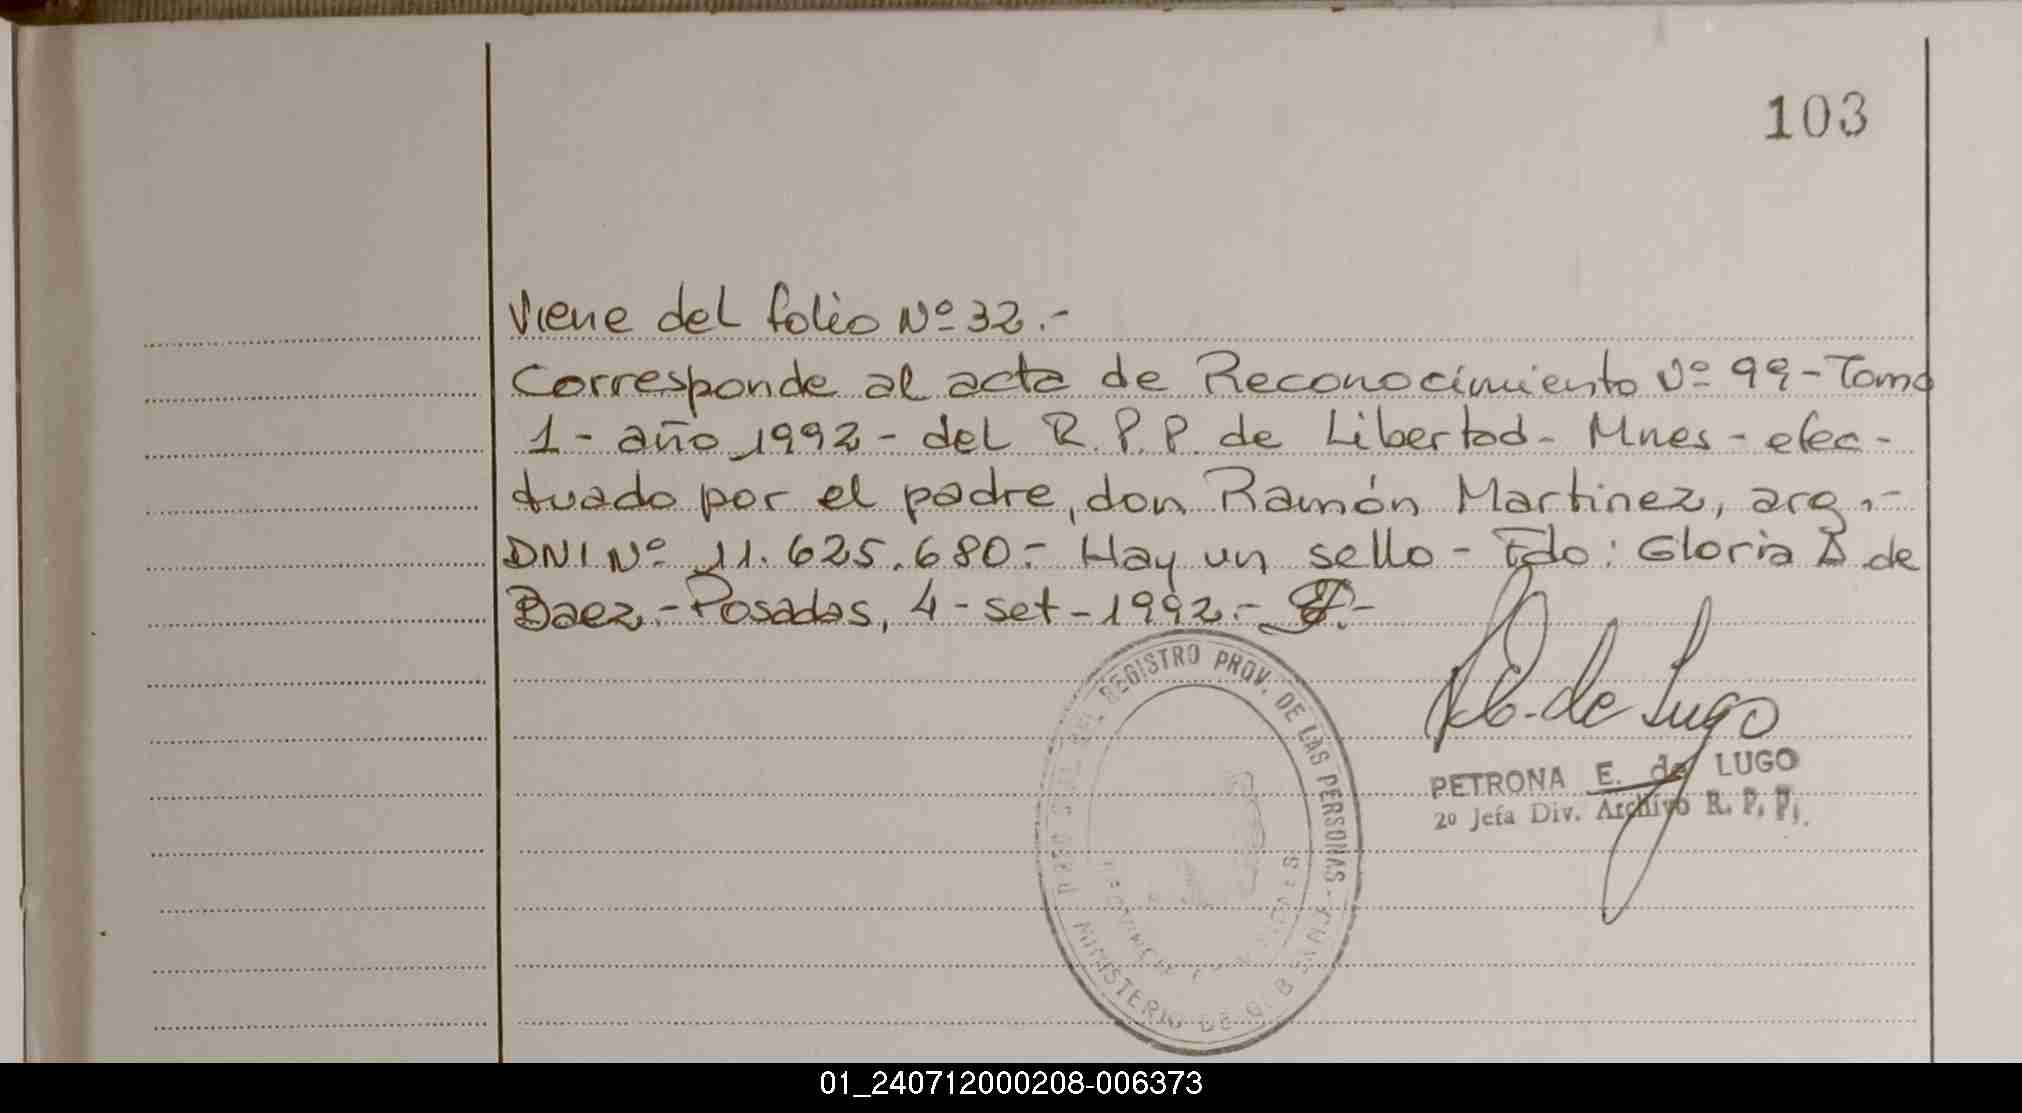 103
Viene del folio Nº 32.-
Corresponde al acta de Reconocimiento Nº 99 - Tomo
1 - año 1992 - del R.P.P. de Libertad - Mnes - efec-
tuado por el padre, don Ramón Martinez, arg.-
DNI Nº 11.625.680.- Hay un sello - Fdo: Gloria B de
Baez.- Posadas, 4 - set - 1992.-
REGISTRO PROV. DE LAS PERSONAS -
MINISTERIO DE G.
PROVINCIA
E. de Lugo
PETRONA E. de LUGO
2º Jefa Div. Archivo R. P. P.
01_240712000208-006373